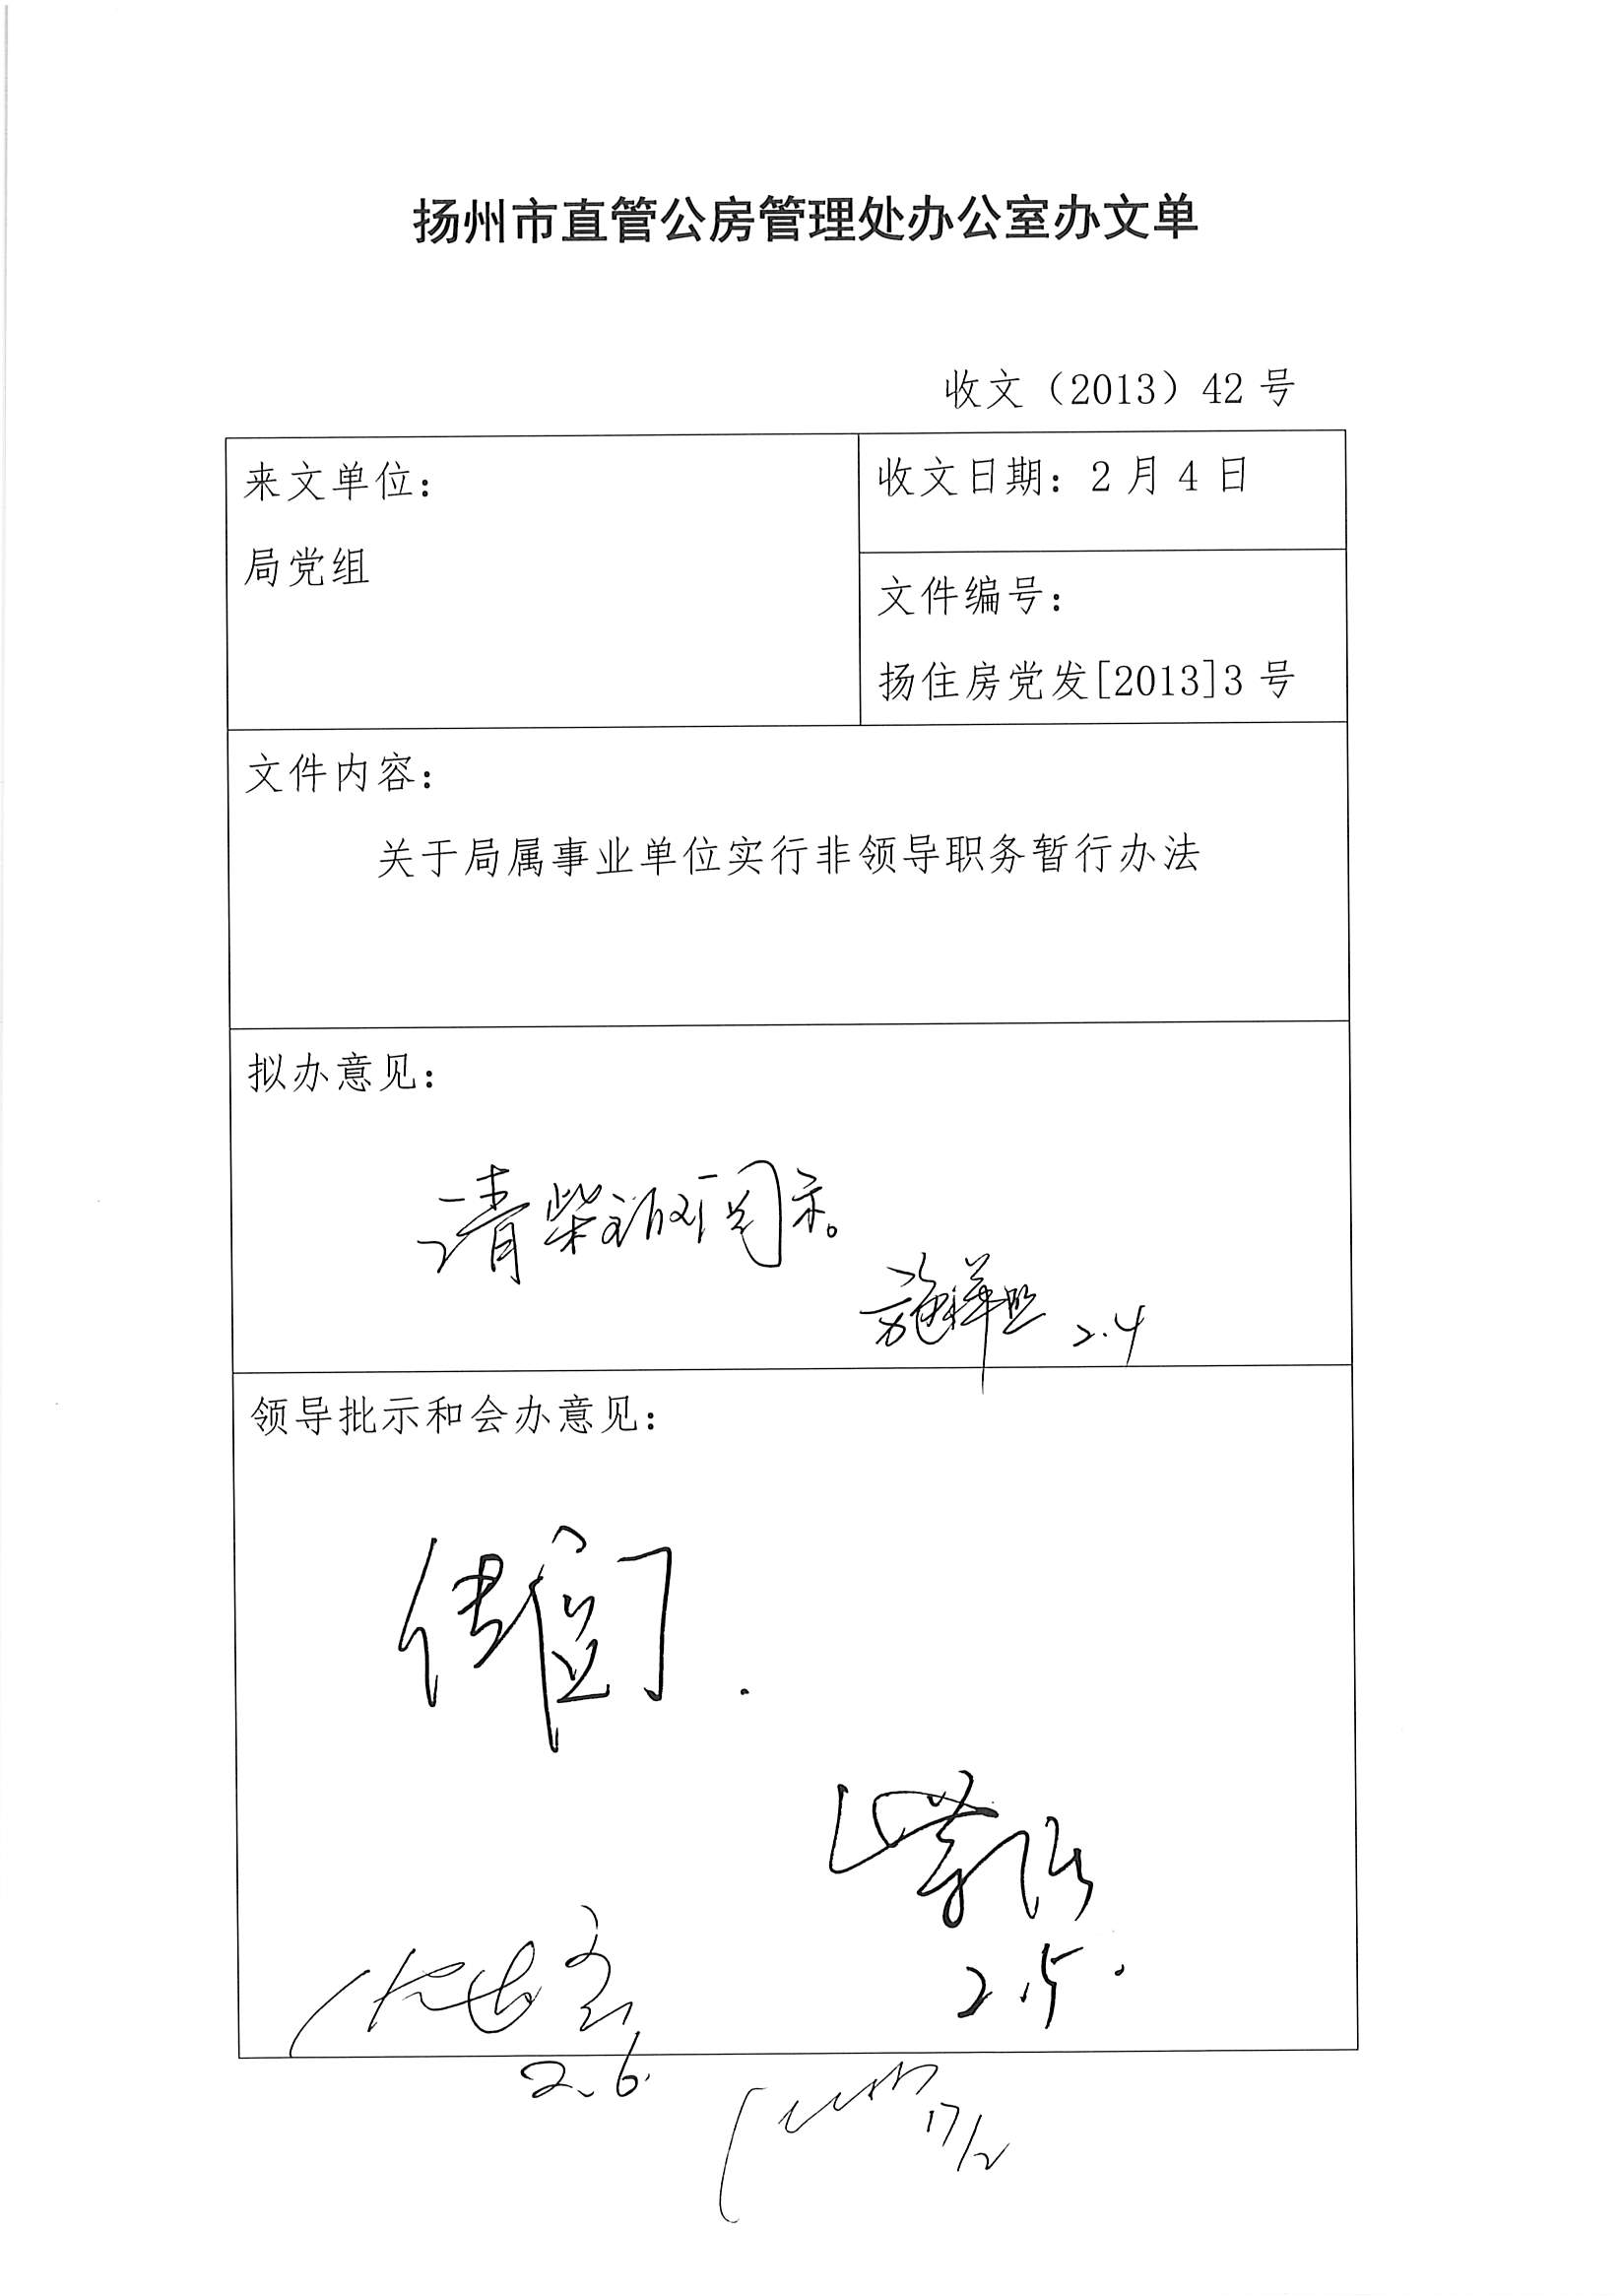 扬州市直管公房管理处办公室办文单
收文（2013）42号
来文单位：
局党组
收文日期：2月4日
文件编号：
扬住房党发[2013]3号
文件内容：
关于局属事业单位实行非领导职务暂行办法
拟办意见：
请柴 阅示。
2.4
领导批示和会办意见：
传阅.
2.5.
2.6.
17/2